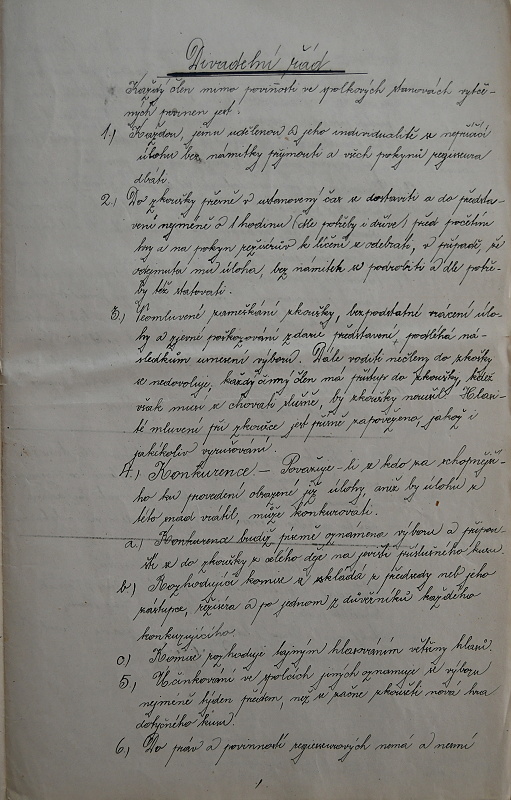 Divadelní řád
Každý člen mimo povinosti ve spolkových stanovách vytče-
ných povinen jest:
1.) Každou, jemu udělenou a jeho individualitě se nepříčící
úlohu bez námitky přijmouti a všech pokynů regisseura
dbáti.
2.) Do zkoušky přesně v ustanovený čas se dostaviti a do předsta-
vení nejméně o 1 hodinu (dle potřeby i dříve) před počátkem
hry a na pokyn režisérův k líčení se odebrati, v případě, že
odejmuta mu úloha, bez námitek se podrobiti a dle potře-
by též statovati.
3.) Neomluvené zameškání zkoušky, bezpodstatné vrácení úlo-
hy a zjevné poškozování zdaru představení, podléhá ná-
sledkům usnesení výboru. Dále voditi nečleny do zkoušky
se nedovoluje, každý činný člen má přístup do zkoušky, však
však musí se chovati slušně, by zkoušky nerušil. Hlasi-
té mluvení při zkoušce jest přísně zapovězeno, jakož i
jakékoliv vyrušování.
4.) Konkurence. – Považuje-li se kdo za schopnější-
ho ku provedení obsazené již úlohy, aniž by úlohu se
této snad vrátil, může konkurovati.
a.) Konkurence budiž písmě oznámena výboru a připou-
stí se do zkoušky z celého děje na jevišti příslušného kusu.
b.) Rozhodující komise se skládá z předsedy neb jeho
zástupce, režiséra a po jednom z důvěrníků každého
konkurujícího.
c.) Komise rozhoduje tajným hlasováním většiny hlasů.
5.) Účinkování ve spolcích jiných oznamuje se výboru
nejméně týden předem, než se začne zkoušeti nová hra
dotyčného kusu.
6.) Do práv a povinností regisseurových nemá a nesmí